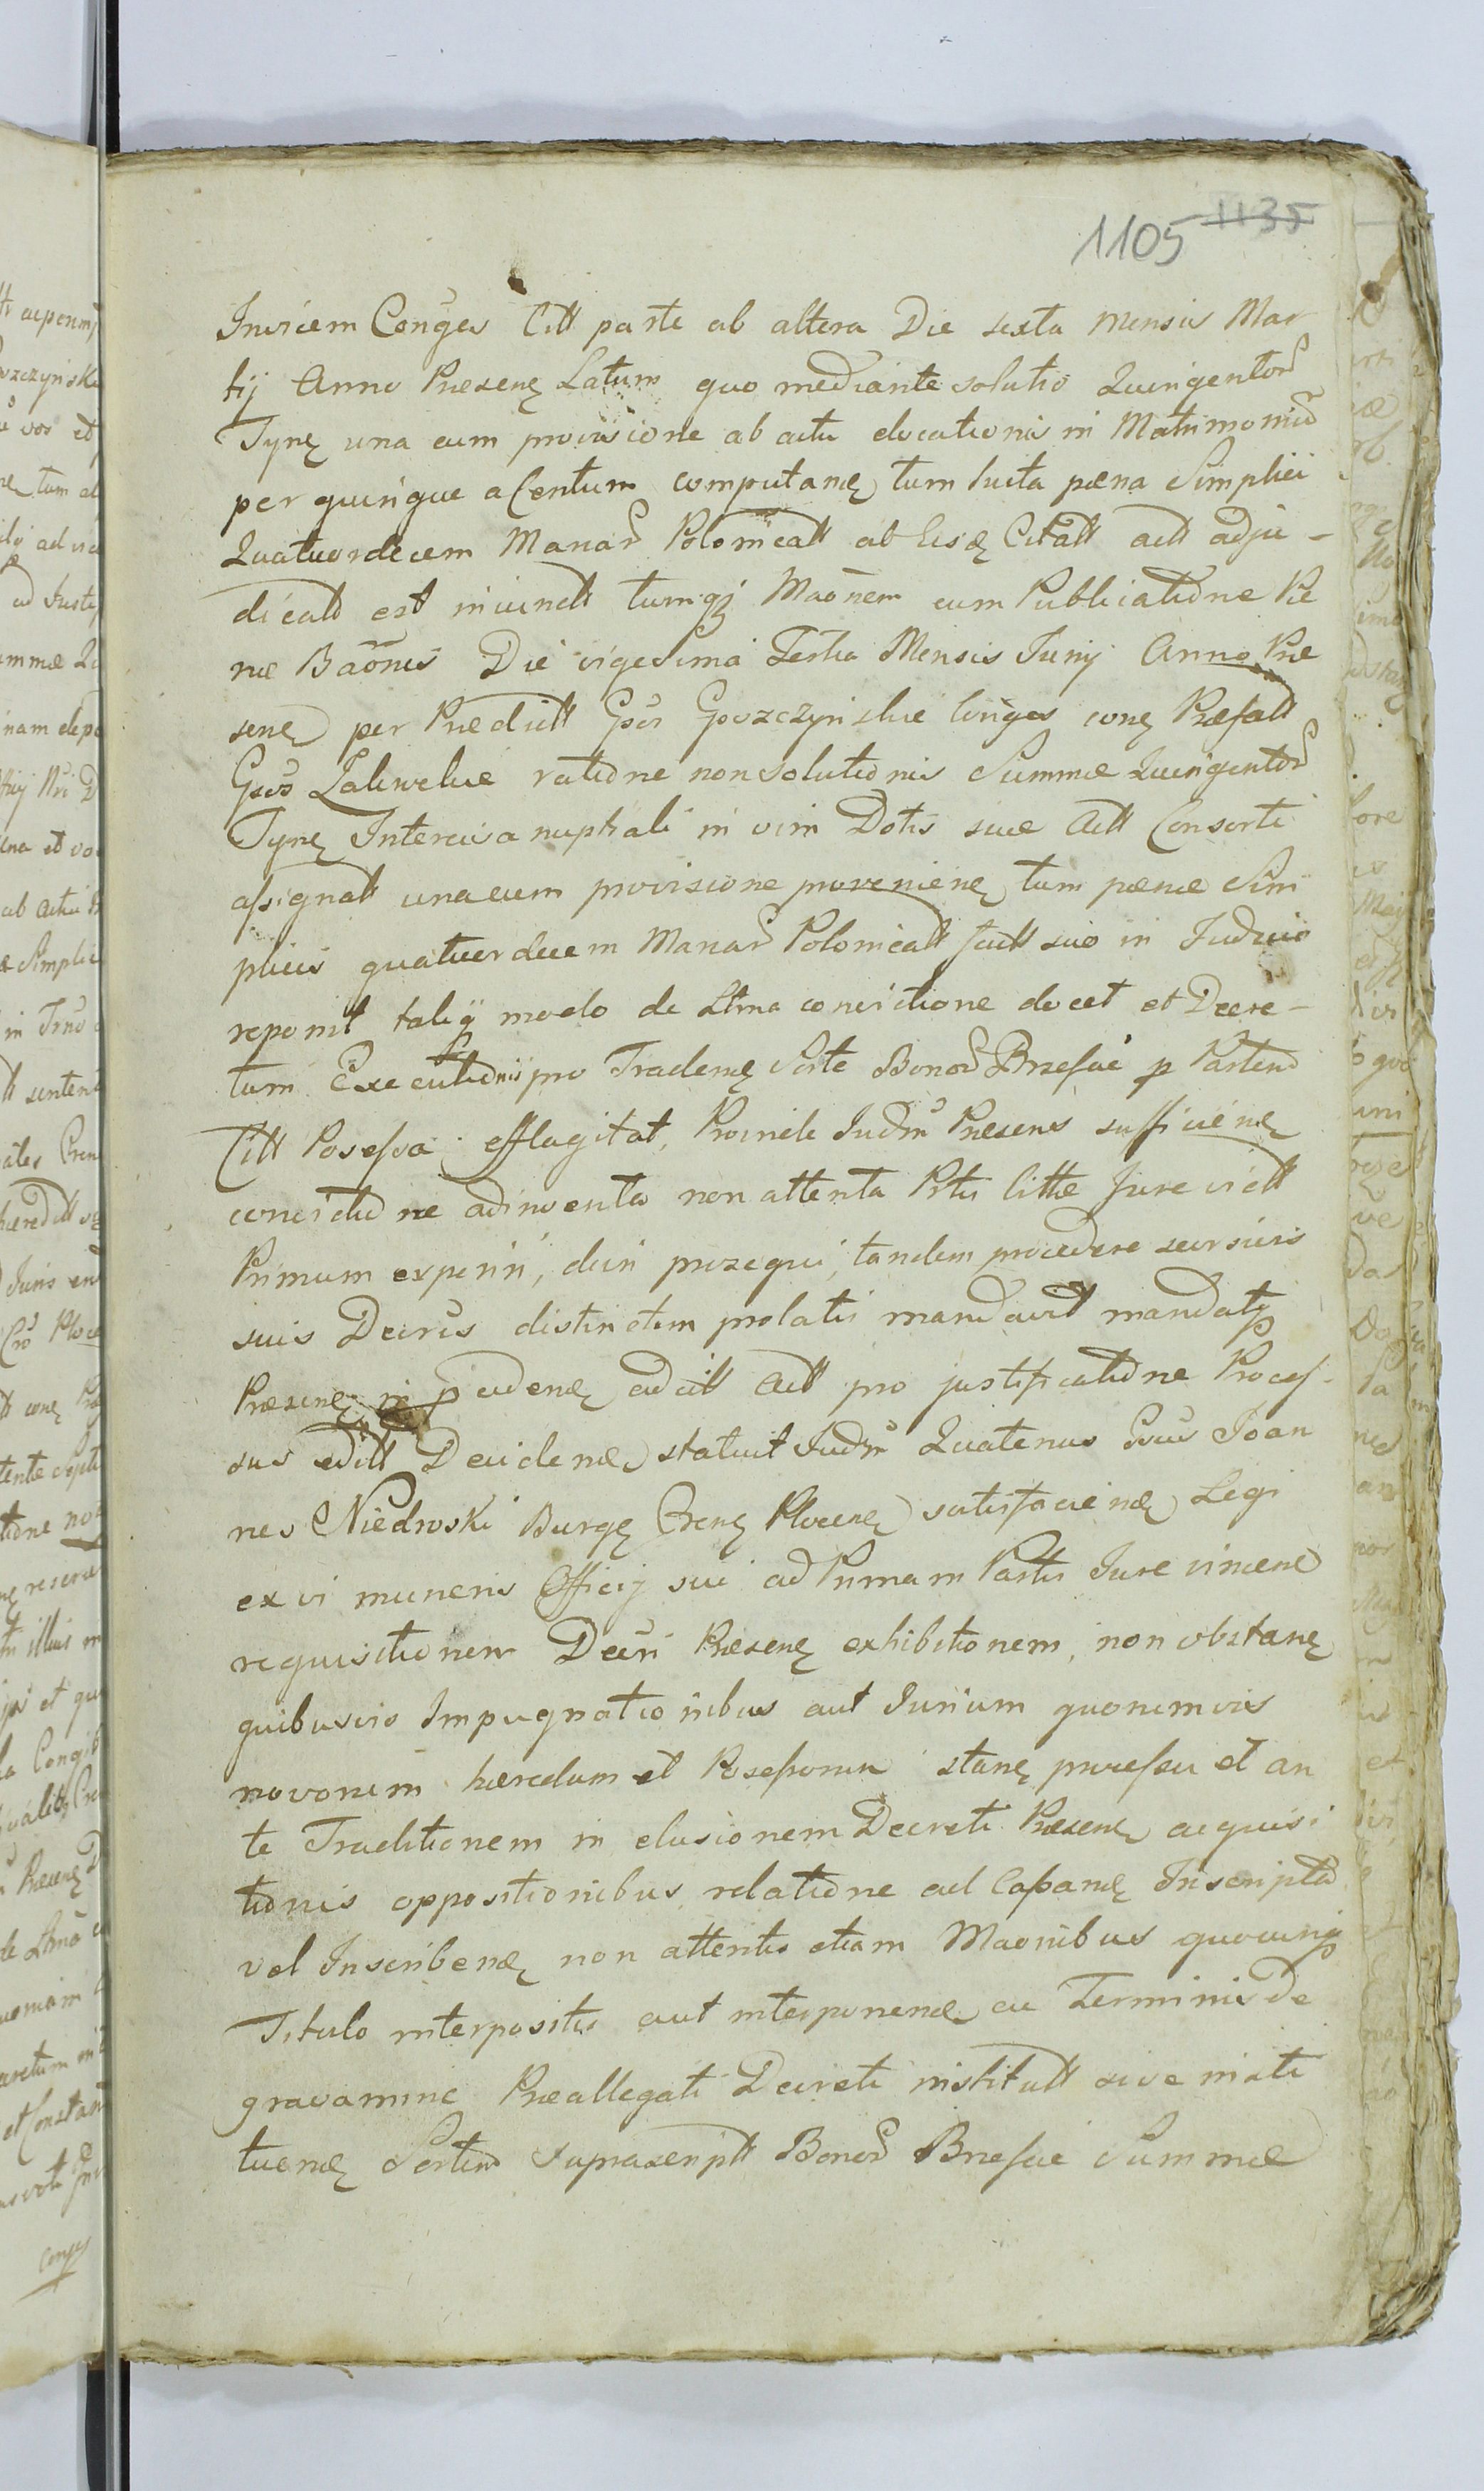 1105 1135
Invicem Conges Citt parte ab altera Die sexta Mensis Mar
tij Anno Præsenę Latum quo mediante solutio Quingentor
Tynę una cum provisione ab actu elocationis in Matrimoniū
per quinque a Centum computanę tum luita pæna Simplici
Quatuordecim Marcar Polonicatt ab Eisdę Citatt Actt adju-
dicatt est iniunctt tumqȝ Maōnem cum Publicatione Pæ
næ Bāonis Die vigesima Tertia Mensis Junij Anno Præ
senę per Prædictt Gsos Goszczynskie Conges conę Præfatt
Gsos Zalewskie ratione non solutionis Summæ Quingentor
Tynę Intercisa nuptiali in vim Dotis suæ Actt Consorti
assignatt una cum provisione provenienę tum pænæ Sim
plicis quatuordecem Marcar Polonicatt factt suo in Judicio
reponit taliqȝ modo de Ltma convictione docet et Decre-
tum Executionis pro Tradenę Sorte Bonor Brzesæ p Partem
Citt Posessa efflagitat, Proinde Judm Præsens sufficienę
convictione adinventa non attenta Ptis Cittæ Jure victt
Primum experiri, dein prosequi, tandem procedere
suis Decris distinctim prolatis mandavit mandatqȝ
Præsenę in adcitt Actt pro justificatione Proces-
sus editt Decidenę statuit Judm Quatenus Gsus Joan
nes Niedroski Burgę Crenę Plocenę satisfacienę Legi
ex vi muneris Officij sui ad Primam Partis Jure vincenę
requisitionem Decri Præsenę exhibitionem, non obstanę
quibusvis Impugnationibus aut Jurium quorumvis
novorum hæredum et Posessorum stanę processu et an
te Traditionem in elusionem Decreti Præsenę acquisi
tionis oppositionibus relatione ad Cassanę Inscriptio
vel Inscribenę non attentis etiam Maonibus quocunqȝ
Titulo interpositis aut interponenę ac Terminis De
gravamine Præallegati Decreti institutt sive insti
tuenę Sortem suprascriptt Bonor Brzesæ Summæ